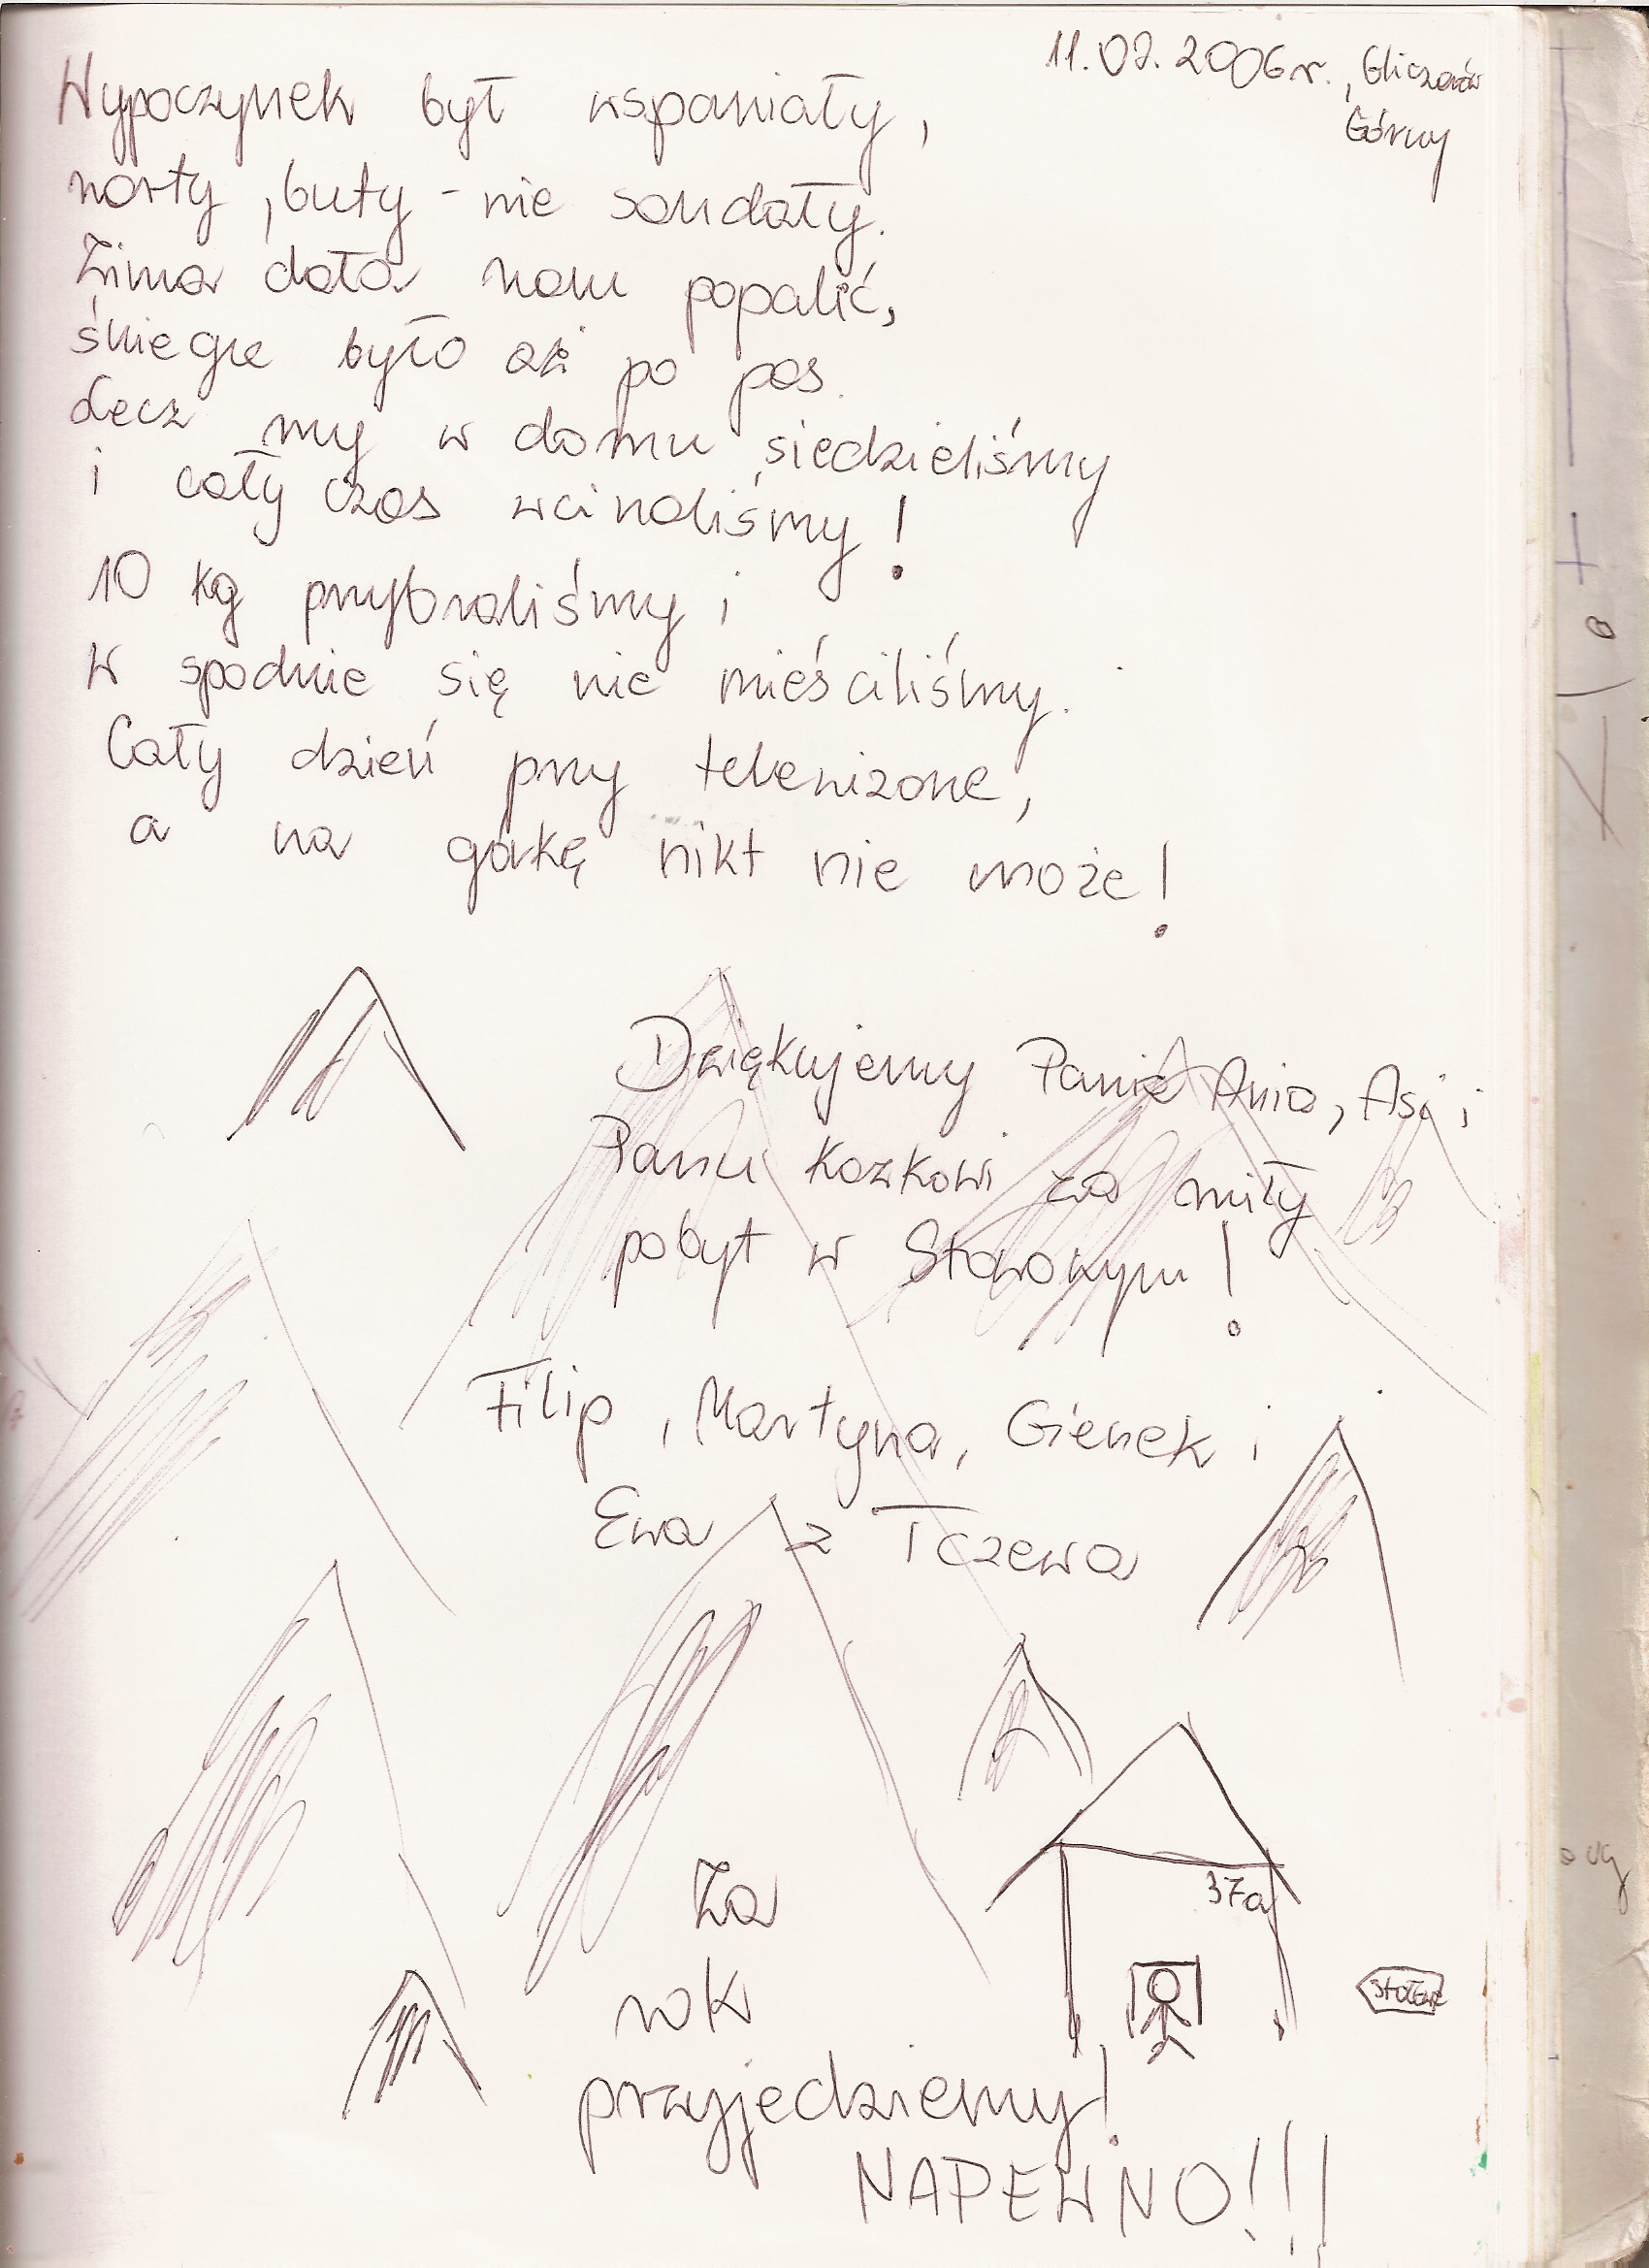 11.02.2006r., Gliczarów
Górny
Wypoczynek był wspaniały,
narty, buty - nie sandały.
Zima dała nam popalić,
śniegu było aż po pas.
Lecz my w domu siedzieliśmy
i cały czas wcinaliśmy!
10 kg przybraliśmy i
w spodnie się nie mieściliśmy.
Cały dzień przy telewizorze,
a na górkę nikt nie może!
Dziękujemy Panie Ania, Asi i
Panu Kozkowi za miły
pobyt w Stołowym!
Filip, Martyna, Gienek i
Ewa z Tczewa
37a
Za
rok
przyjedziemy!
NAPEWNO!!!